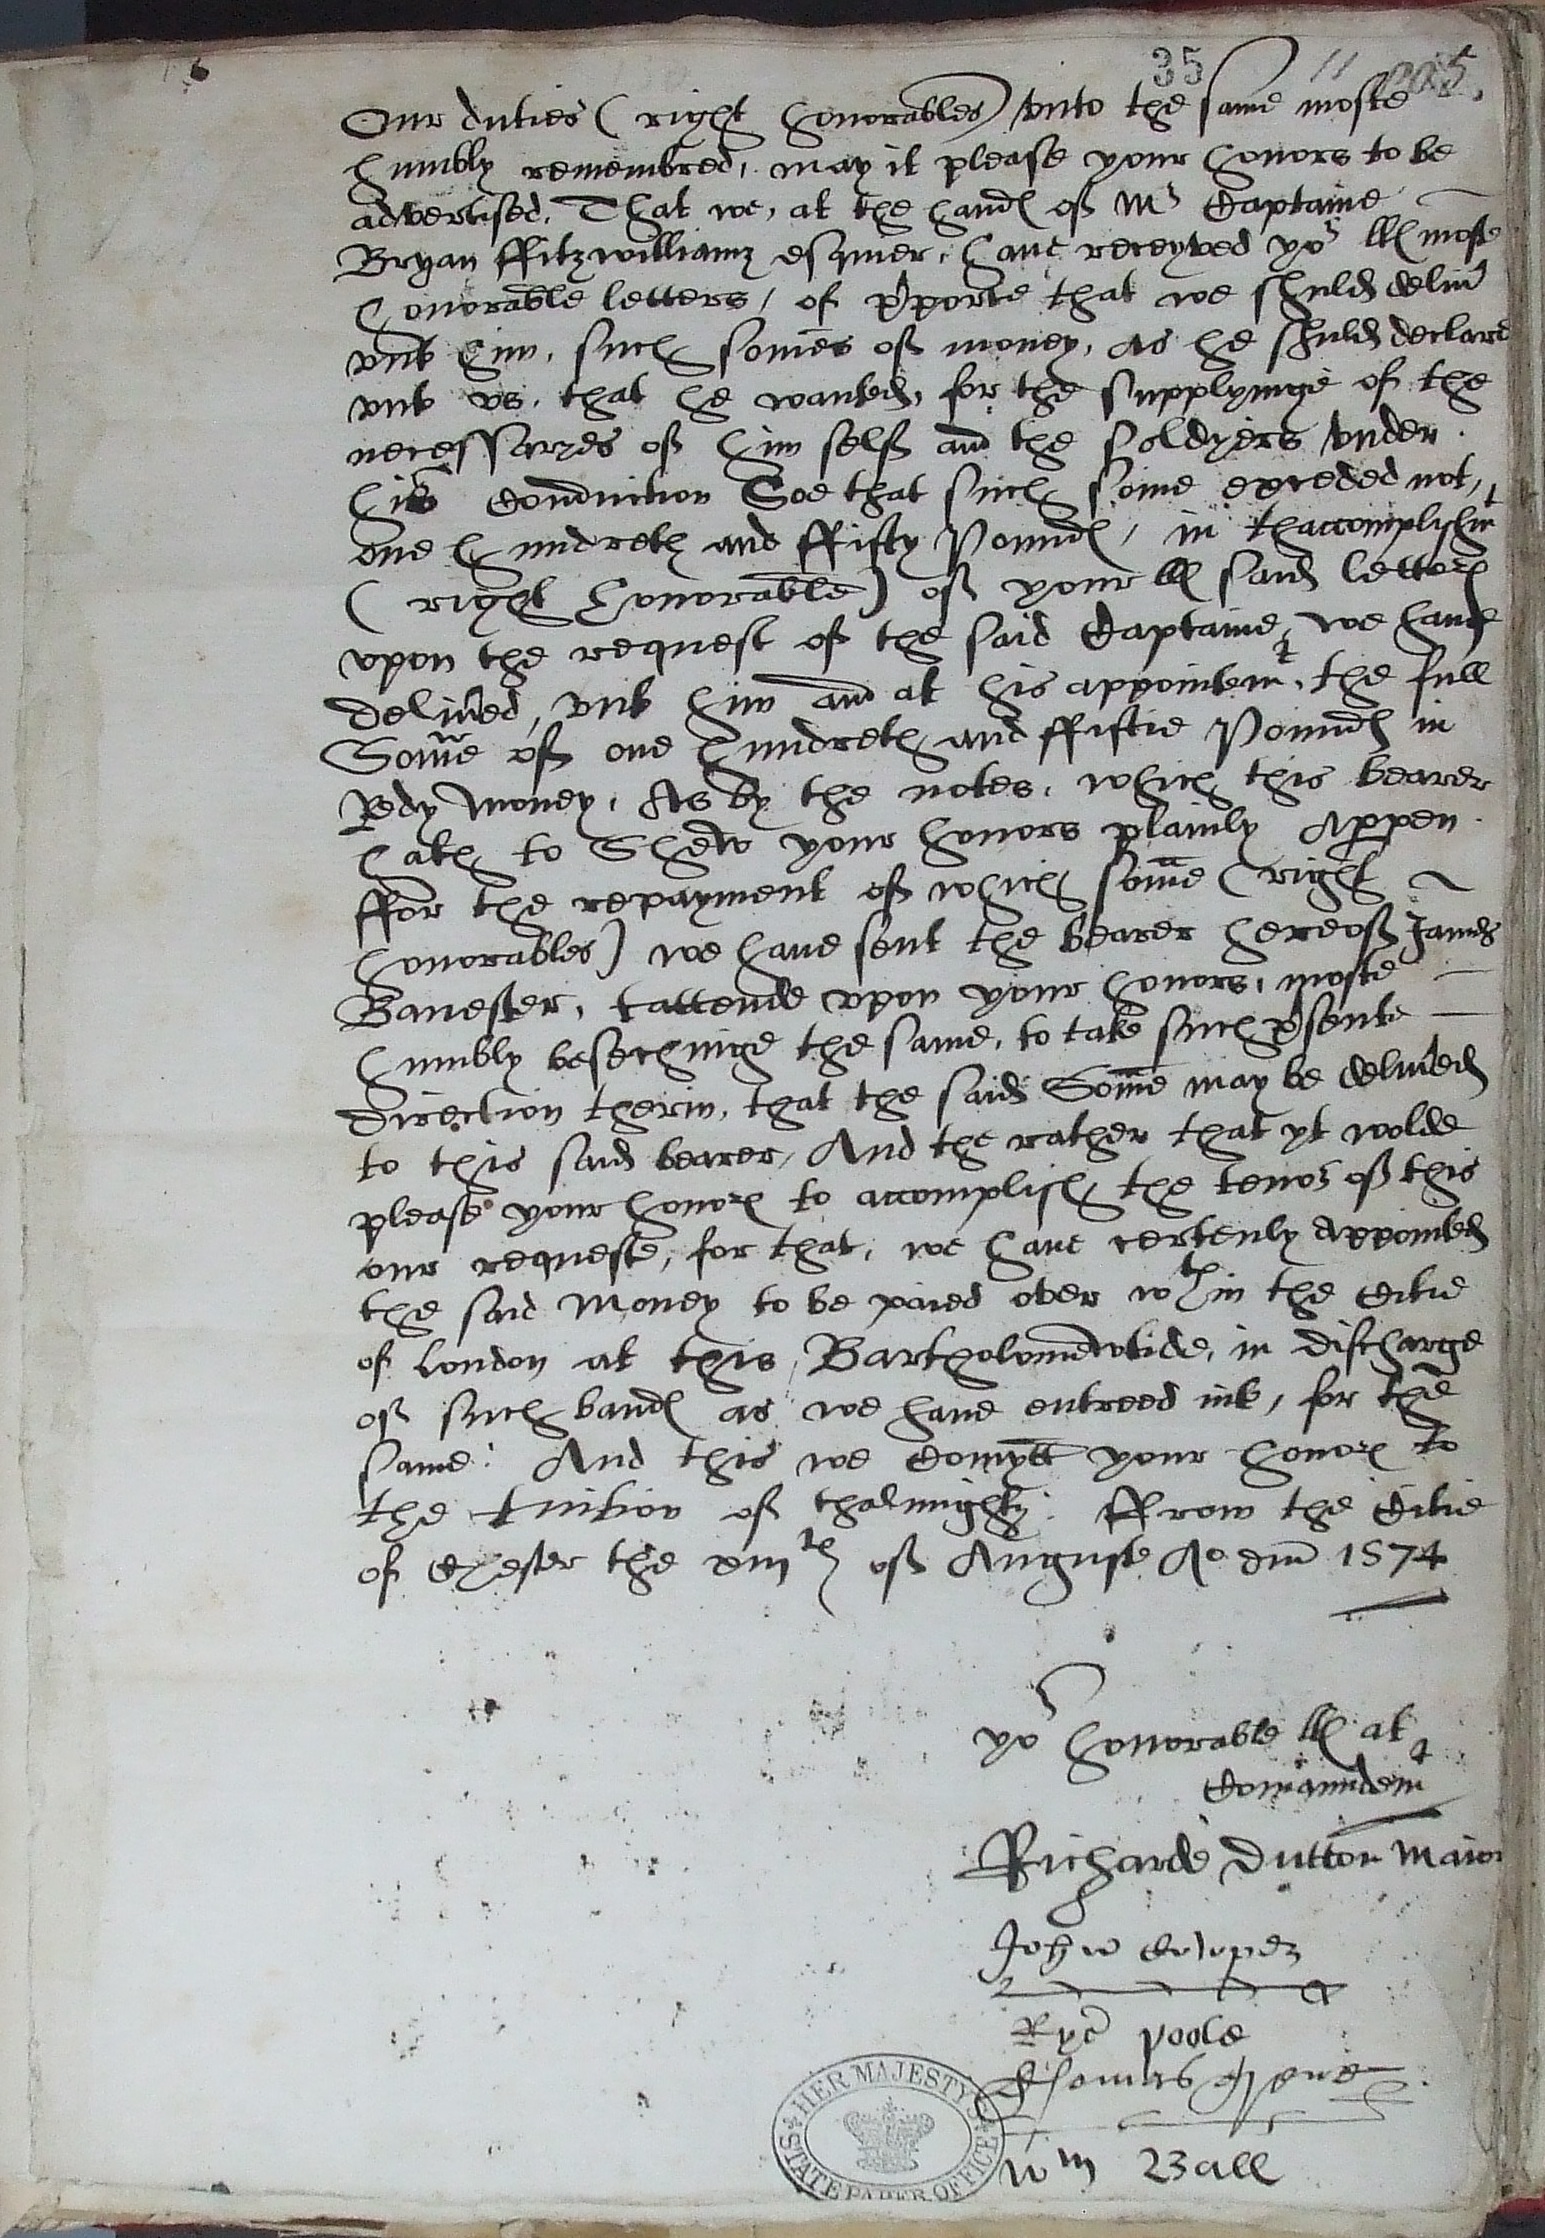 35 11 205.
Our duties (right honorables) vnto the same moste
humbly remembred, may it please your honors to be
advertised, That we, at the handes of Mr Captaine
Bryan ffitzwilliamz esquier, haue receyved yor lls moste
honorable letters, of purporte that we shuld deliuer
vnto him, such somes of money, as he shuld declare
vnto vs, that he wanted, for the supplyinge of the
necessaryes of him self and the soldyers vnder
his Conduction Soe that such some exceded not,
one hundreth and ffifty Poundes, in thaccomplishmt
(right honorable) of your lls said letters
vpon the request of the said Captaine, we haue
deliuered, vnto him and at his appointemt, the full
Somme of one hundreth and ffiftie Poundes in
Redy money, As by the notes, which this bearer
hath to Shew your honors plainly Apper
ffor the repayment of which somme (right
honorables) we haue sent the bearer hereof James
Banester, tattende vpon your honors, moste
humbly besechinge the same, to take such presente
direction therin, that the said Somme may be deliuered
to this said bearer, And the rather that yt wolde
please your honors to accomplish the tenor of this
our requeste, for that, we haue certenly appointed
the said Money to be paied over wthin the Citie
of London at this Bartholomewtide, in discharge
of such bandes as we haue entreed into, for the
same: And this we Comytt your honors to
the tuition of thalmighty. ffrom the Citie
of Chester the xiiith of August Ao dni 1574
yor honorable lls at
Comaundemt
Richarde Dutton Maior
John Cowper
Ryc poole
Thomas
Wm Ball
HER MAJESTY'S STATE PAPER OFFICE